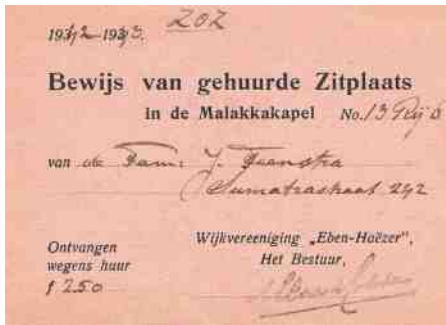 ZOZ
1942-1943.
Bewijs van gehuurde Zitplaats
in de Malakkakapel No. 13 Rij
van de Fam: J. Feenstra
Sumatrastraat 242
Ontvangen
wegens huur
f 250
Wijkvereeniging „Eben-Haëzer",
Het Bestuur,